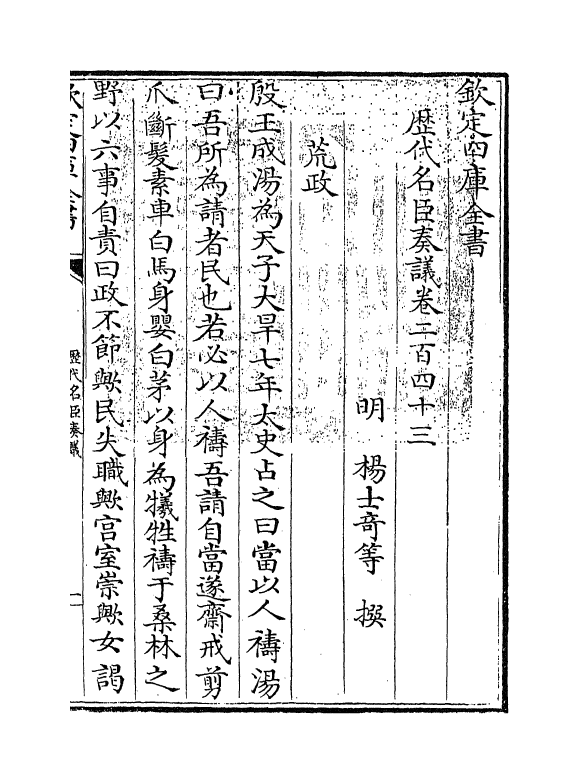 欽定四庫全書
歴代名臣奏議卷二百四十三
明 楊士竒等 撰
荒政
殷王成湯為天子大旱七年太史占之曰當以人禱湯
曰吾所為請者民也若必以人禱吾請自當遂齋戒剪
爪斷髮素車白馬身嬰白茅以身為犧牲禱于桑林之
野以六事自責曰政不節歟民失職歟宫室崇歟女謁
歴代名臣奏議